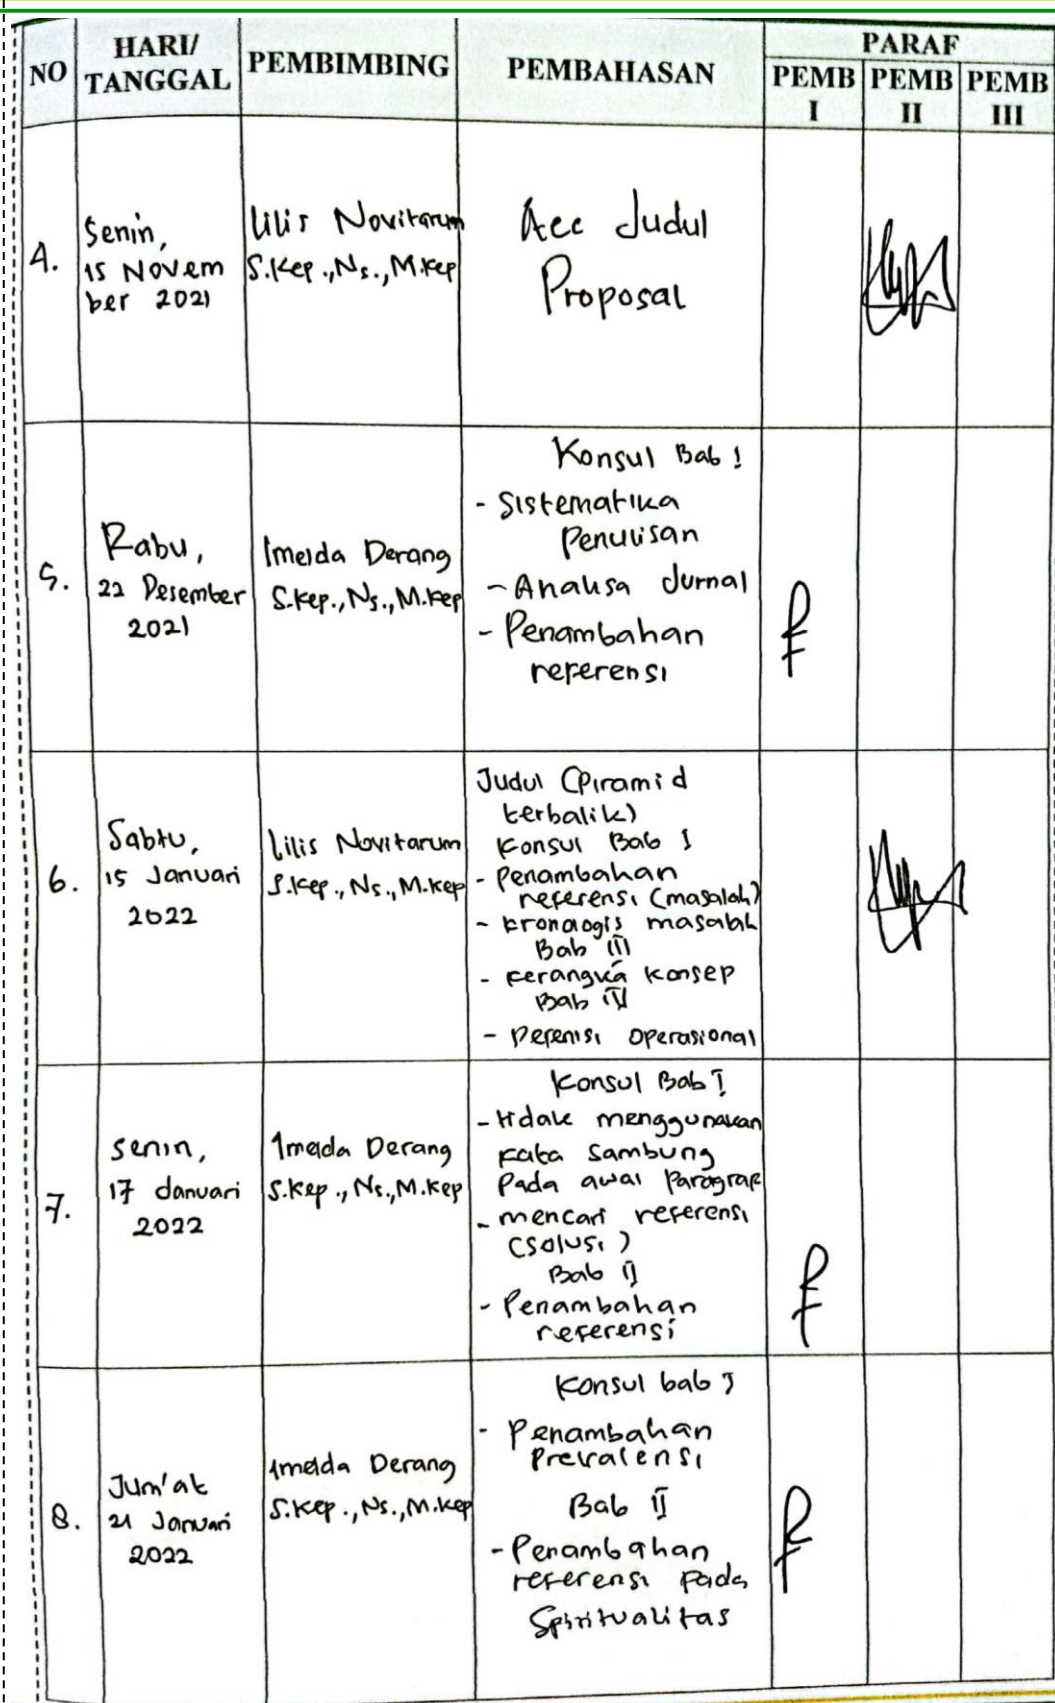 NO
HARI/
TANGGAL
PEMBIMBING
PEMBAHASAN
PARAF
PEMB
I
PEMB
II
PEMB
III
4.
Senin,
15 Novem
ber 2021
Lilis Novitarum
S.Kep.,Ns.,M.Kep
Acc Judul
Proposal
5.
Rabu,
22 Desember
2021
Imelda Derang
S.Kep.,Ns.,M.Kep
Konsul Bab I
- Sistematika
Penulisan
- Analisa Jurnal
- Penambahan
referensi
6.
Sabtu,
15 Januari
2022
Lilis Novitarum
S.Kep.,Ns.,M.Kep
Judul (Piramid
terbalik)
Konsul Bab I
- Penambahan
referensi (masalah)
- kronologis masalah
Bab III
- kerangka konsep
Bab IV
- Defenisi Operasional
7.
Senin,
17 Januari
2022
Imelda Derang
S.Kep.,Ns.,M.Kep
Konsul Bab I
- tidak menggunakan
kata sambung
Pada awal Paragraf
- mencari referensi
(Solusi)
Bab II
- Penambahan
referensi
8.
Jum'at
21 Januari
2022
Imelda Derang
S.Kep.,Ns.,M.Kep
Konsul bab I
- Penambahan
Prevalensi
Bab II
- Penambahan
referensi Pada
Spiritualitas